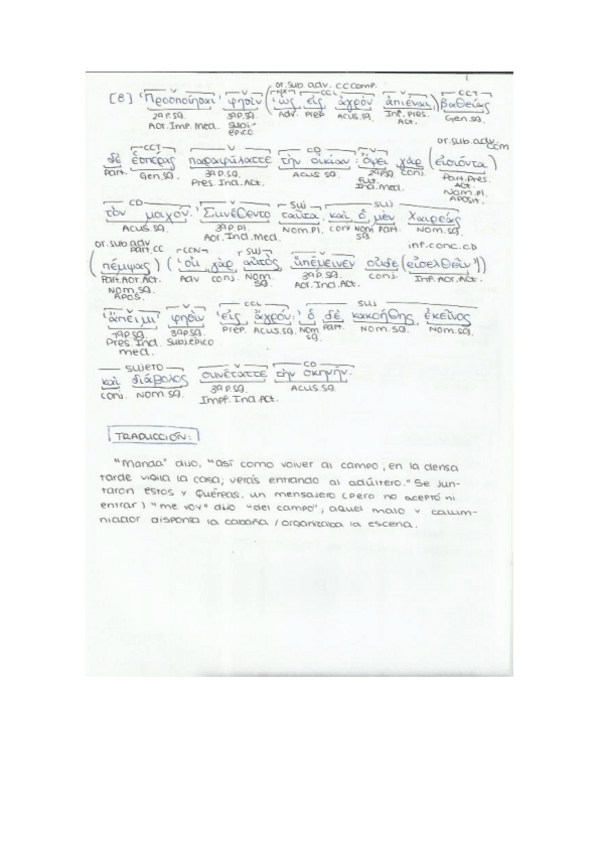 or. sub. adv. CC comp.
V V NX CCL V CCT
[8] 'Προσποίησαι' φησὶν ('ὡς εἰς ἀγρὸν ἀπιέναι) βαθείας
2ª P. SG. 3ª P. SG. Adv. Prep. Acus. SG. Inf. Pres. Gen. SG.
Aor. Imp. Med. Act.
or. sub. adv.
CCT V CD V CCM
δὲ ἑσπέρας παραφύλαττε τὴν οἰκίαν· ὄψει γὰρ (εἰσιόντα)
Part. Gen. SG. 3ª P. SG. Acus SG. 2ª P. SG conj. Part. Pres.
Pres Ind. Act. Fut. Act.
Ind. Med. Nom. Pl.
CD V SUJ SUJ
τὸν μοιχόν.' Συνέθεντο ταῦτα, καὶ ὁ μὲν Χαιρέας
Acus. SG. 3ª P. Pl. Nom. Pl. conj Nom Part. Nom. SG.
Aor. Ind. Med. SG
or. sub adv
Part. CC CCN SUJ V inf. conc. CD
(πέμψας) ('οὐ γὰρ αὐτὸς ὑπέμεινεν οὐδὲ (εἰσελθεῖν'))
Part. Aor. Act. Adv conj. Nom. 3ª P. SG. conj. Inf. Aor. Act.
Nom. SG. SG. Aor. Ind. Act.
Apos.
V V CCL SUJ
'ἄπειμι' φησὶν 'εἰς ἀγρόν·' ὁ δὲ κακοήθης ἐκεῖνος
3ª P. SG. Prep. Acus. SG. Nom Part. Nom. SG. Nom. SG.
Pres Ind. SG.
Med.
SUJETO V CD
καὶ διάβολος συνέταττε τὴν σκηνήν.
conj. Nom. SG. 3ª P. SG. Acus SG.
Impf. Ind. Act.
TRADUCCIÓN:
"Manda" dijo, "así como volver al campo, en la densa
tarde vigila la casa; verás entrando al adúltero." Se jun-
taron estos y Quéreas, un mensajero (pero no aceptó ni
entrar) "me voy" dijo "del campo", aquel malo y calum-
niador disponía la cabaña / organizaba la escena.